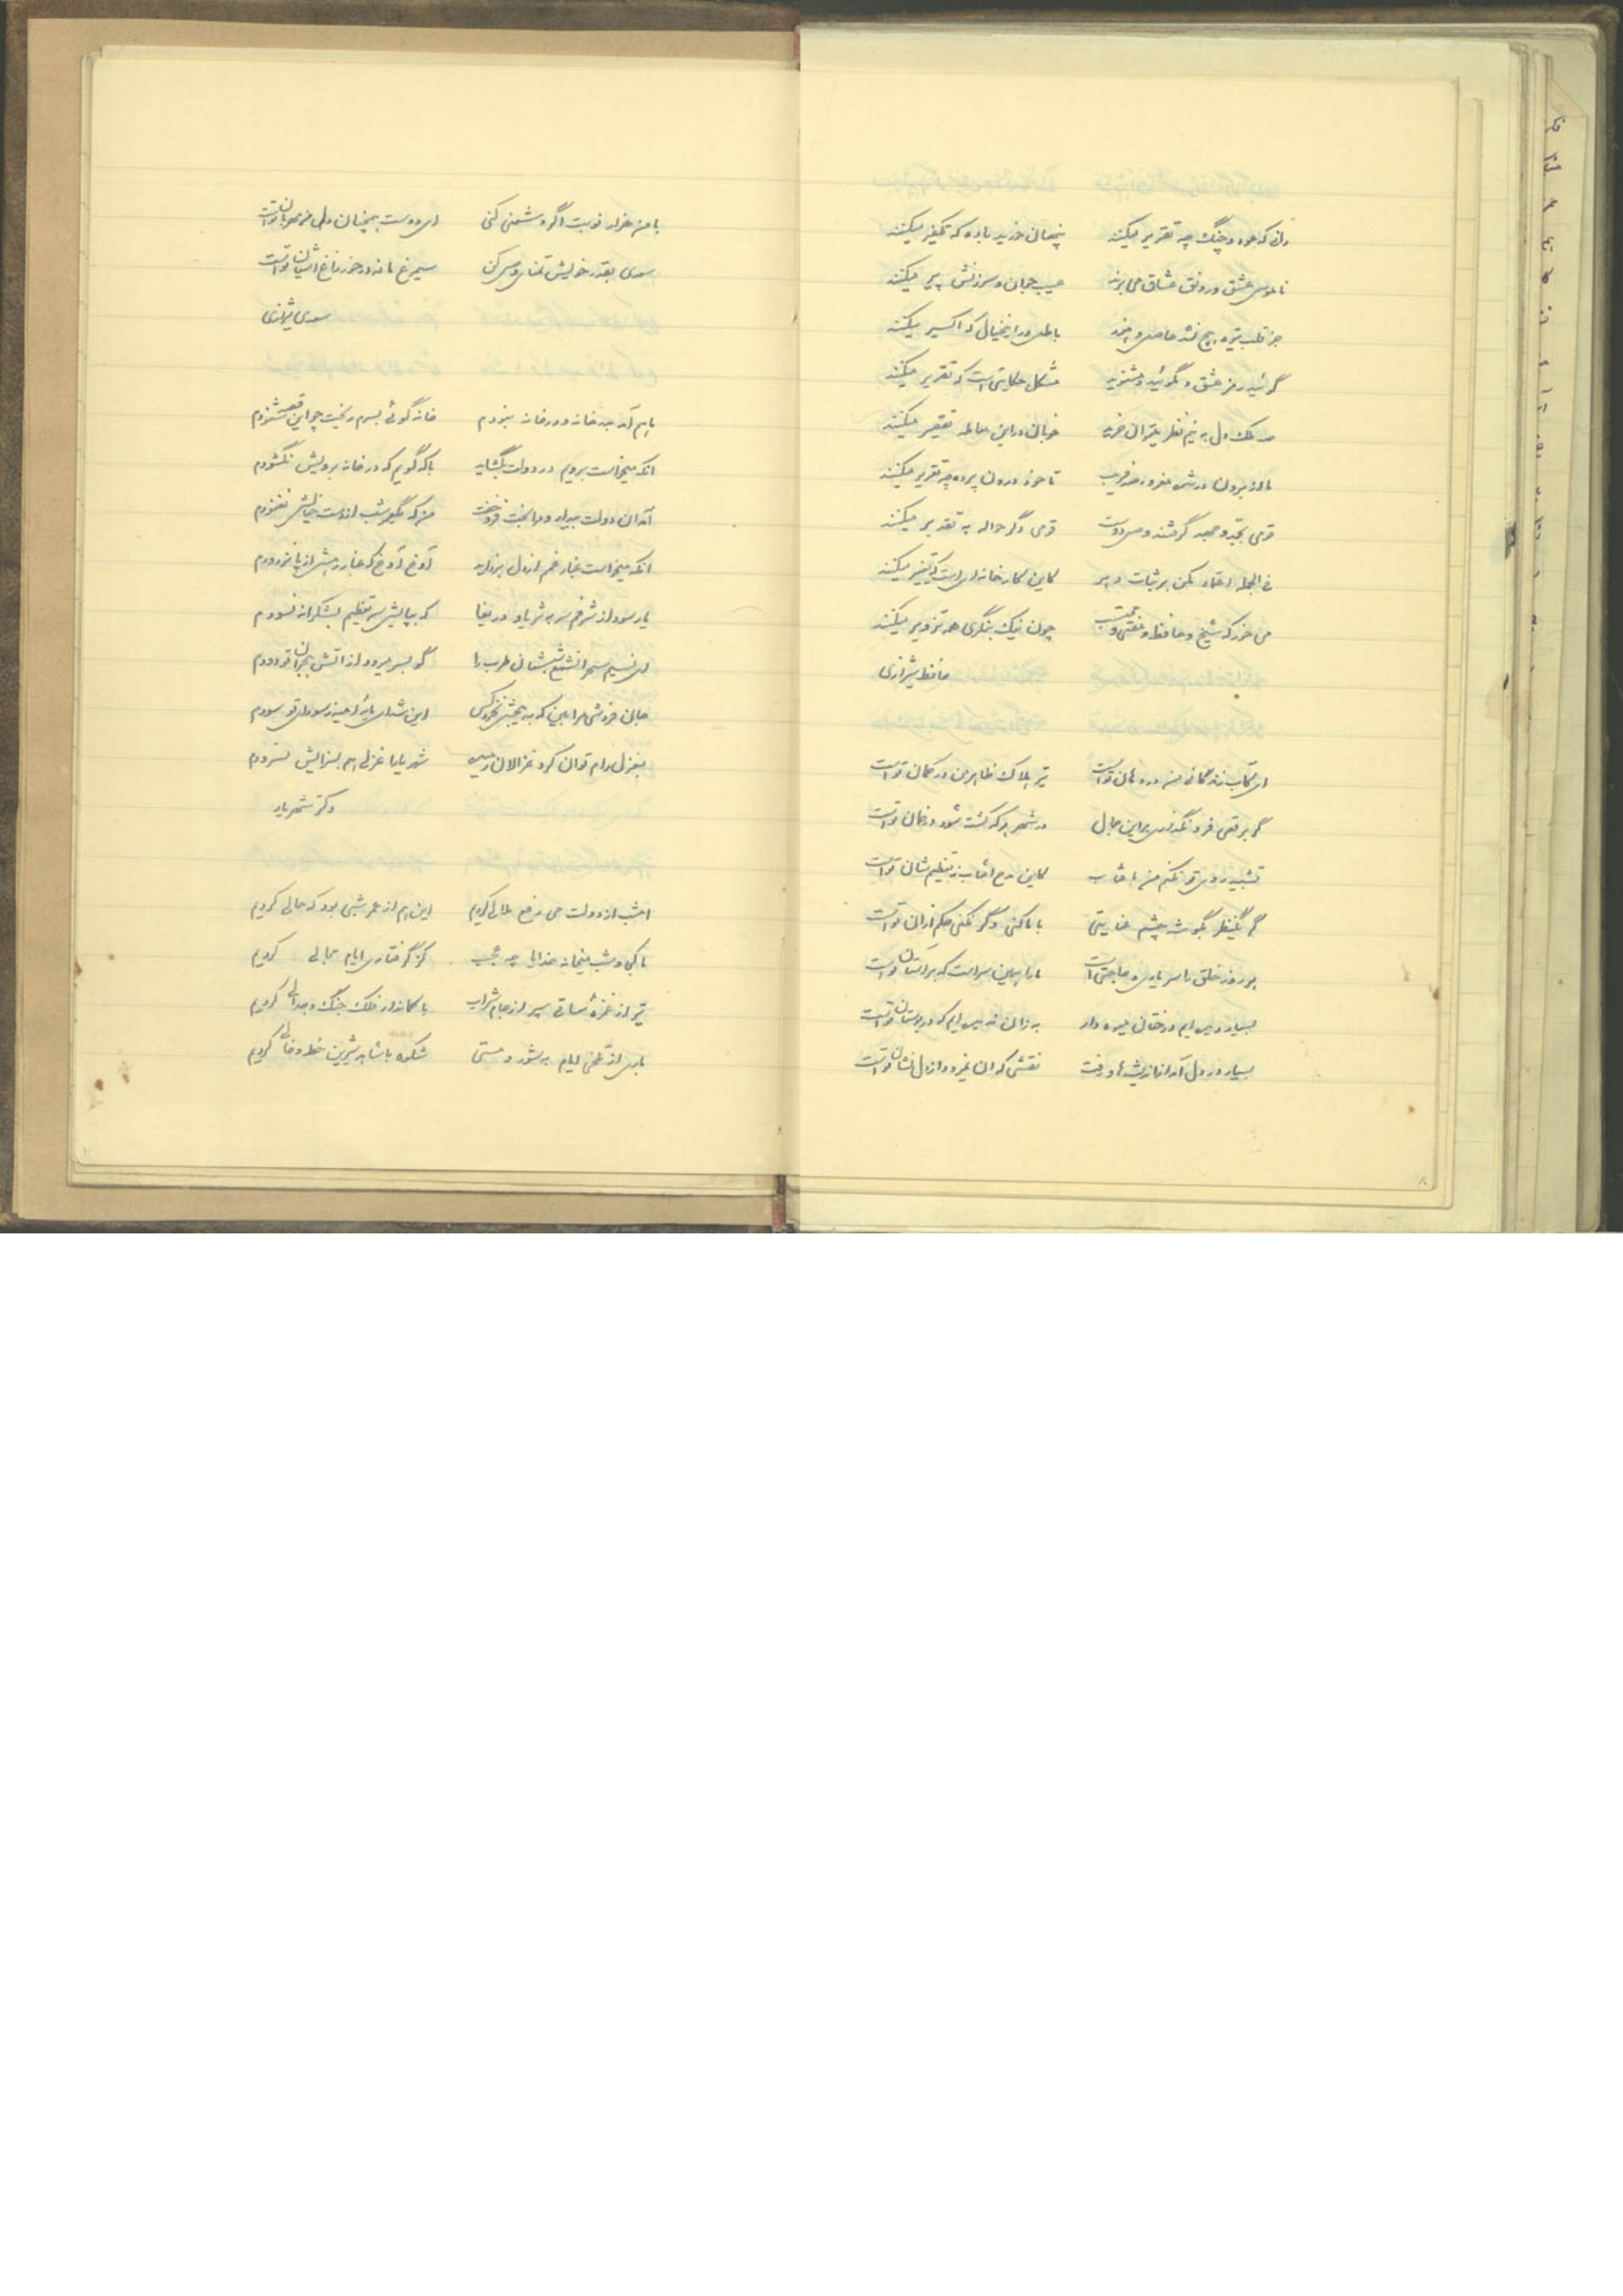 دانی که عود و چنگ چه تقریر میکنند پنهان خورید باده که تکفیر میکنند
ناموس عشق و رونق عشاق می برند عیب جوان و سرزنش پیر میکنند
جز قلب تیره هیچ نشد حاصل و هنوز باطل در این خیال که اکسیر میکنند
گوئید رمز عشق مگوئید و مشنوید مشکل حکایتی است که تقریر میکنند
صد ملک دل به نیم نظر میتوان خرید خوبان در این معامله تقصیر میکنند
ما از برون در شده مغرور صد فریب تا خود درون پرده چه تقریر میکنند
قومی بجد و جهد گرفتند وصل دوست قومی دگر حواله به تقدیر میکنند
فی الجمله اعتماد مکن بر ثبات دهر کاین کارخانه ای است که تغییر میکنند
می خور که شیخ و حافظ و مفتی و محتسب چون نیک بنگری همه تزویر میکنند
حافظ شیرازی
ای کاب زندگانی من در دهان تو است تیر هلاک ظاهر من در کمان تو است
گر برقعی فرو نگذاری بر این جمال در شهر هر که کشته شود در ضمان تو است
تشبیه روی تو نکنم من بافتاب کاین مدح آفتاب نه تعظیم شان تو است
گر یکنظر بگوشه چشم عنایتی با ما کنی وگر نکنی حکم از آن تو است
هر روز خلق را سر یاری و حاجتی است ما را همین سر است که بر آستان تو است
بسیار دیده ایم درختان میوه دار به زان ندیده ایم که در بوستان تو است
بسیار در دل آمد از اندیشه ها و رفت نقشی که آن نمیرود از دل نشان تو است
با من هزار نوبت اگر دشمنی کنی ای دوست همچنان دل من مهربان تو است
سعدی بقدر خویش تمنای وصل کن سیمرغ ما نه در خور زاغ آشیان تو است
سعدی شیرازی
یارم آمد بدر خانه و در خانه نبودم خانه گوئی بسرم ریخت چو این قصه شنودم
آنکه میخواست برویم در دولت بگشاید با که گویم که در خانه برویش نگشودم
آمد آن دولت بیدار و مرا بخت فرو خفت من که یکعمر شب از دست خیالش نغنودم
آنکه میخواست غبار غم از دل بزداید آوخ آوخ که غبار رهش از پا نزدودم
یار سود از شرفم سر به ثریا و دریغا که بپایش سر تعظیم بشکرانه نسودم
ای نسیم سحر آنشمع شبستان طرب را گو بسر میرود از آتش هجران تو دودم
جان فروشی مرا بین که به هیچش نخرد کس این شد ای مایه امید ز سودای تو سودم
بغزل رام توان کرد غزالان رمیده شهریارا غزلی هم بسزایش نسرودم
دکتر شهریار
امشب از دولت می دفع ملالی کردیم این هم از عمر شبی بود که حالی کردیم
ما کجا و شب میخانه خدایا چه عجب کز گرفتاری ایام مجالی کردیم
تیر از غمزه ساقی سپر از جام شراب با کماندار فلک جنگ و جدالی کردیم
باری از تلخی ایام به شور و مستی شکوه با شاهد شیرین خط و خالی کردیم